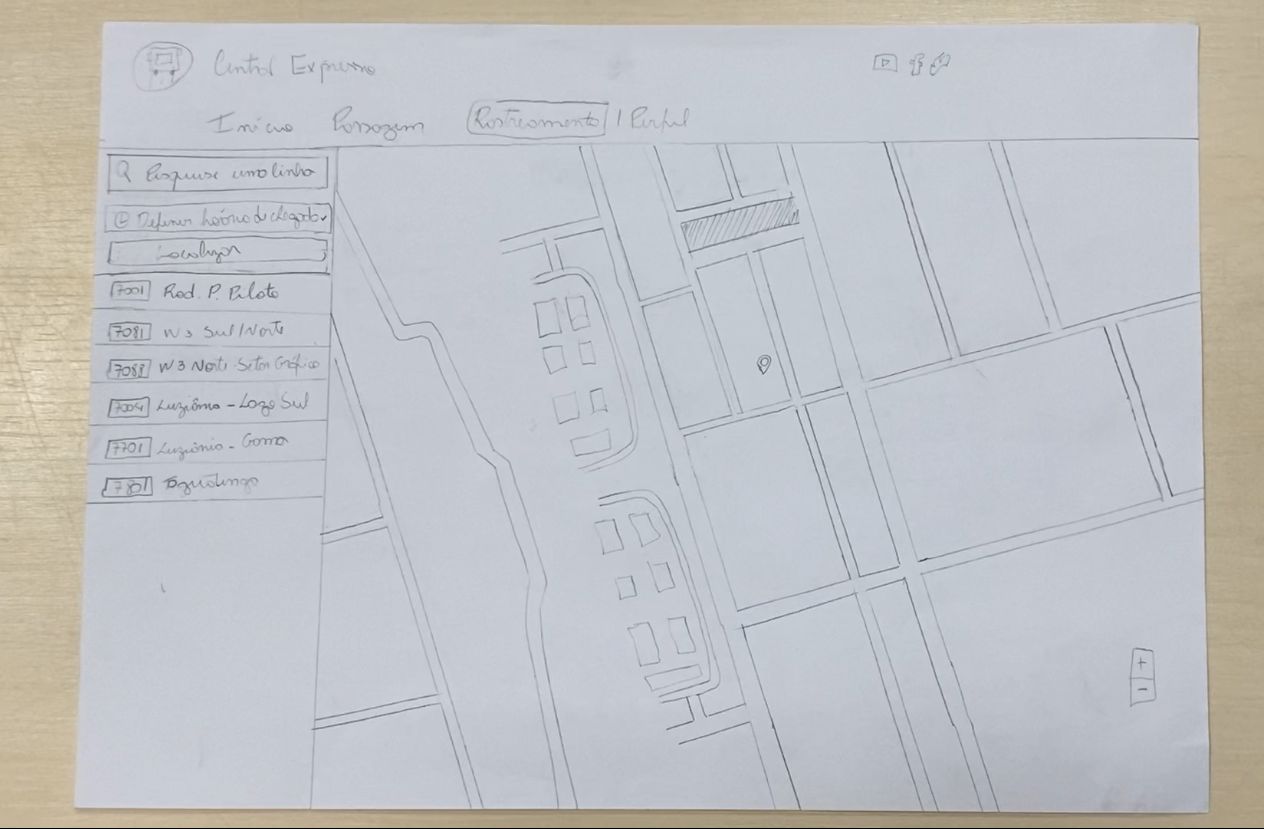 Central Expresso
Início Passagem Rastreamento | Perfil
Pesquise uma linha
Definir horário de chegada
Localizar
7001 Rod. P. Piloto
7081 W3 Sul/Norte
7088 W3 Norte-Setor Gráfico
7004 Luziânia - Lago Sul
7701 Luziânia - Gama
7801 Taguatinga
+
-